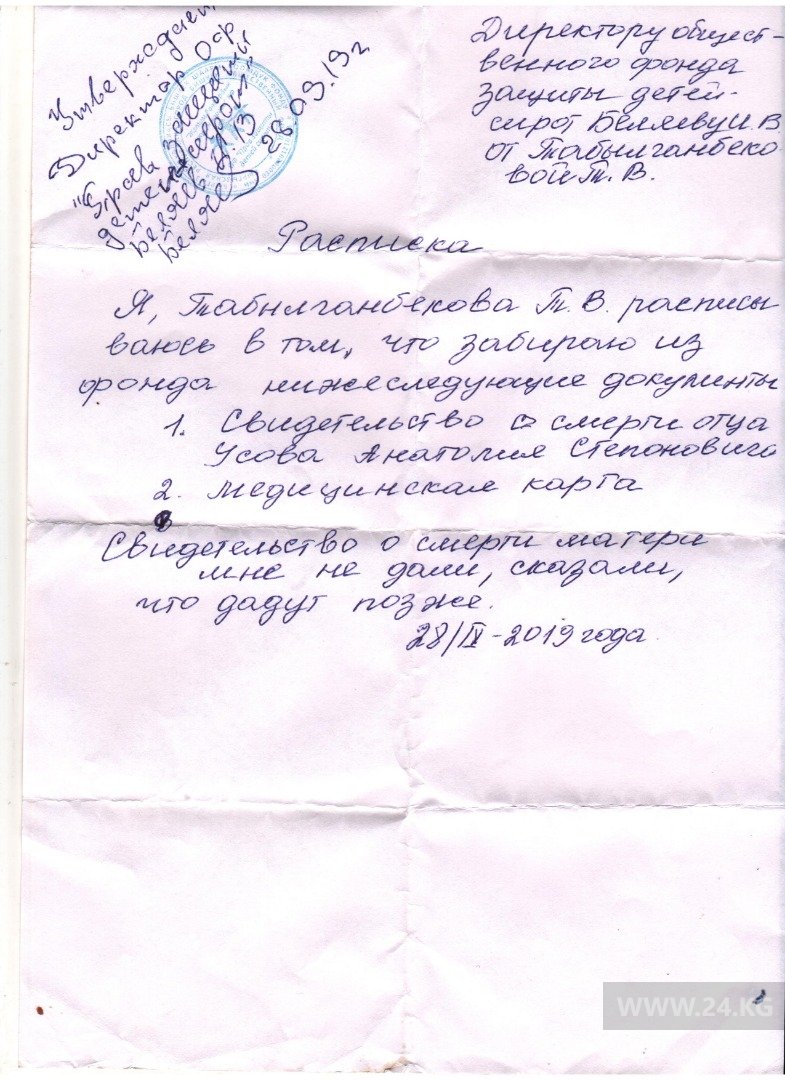 Утверждаю
Директор ОФ
защиты
детей-сирот"
Беляев И.В
Беляев 28 09.19г
Директору общест-
венного фонда
защиты детей-
сирот Беляеву И.В
от Табылганбеко
вой Т. В.
Расписка
Я, Табылганбекова Т.В. расписы
ваюсь в том, что забираю из
фонда нижеследующие документы
1. Свидетельство о смерти отца
Усова Анатолия Степоновича
2. медицинская карта
Свидетельство о смерти матери
мне не дали, сказали,
что дадут позже.
28/IX-2019 года.
WWW.24.KG